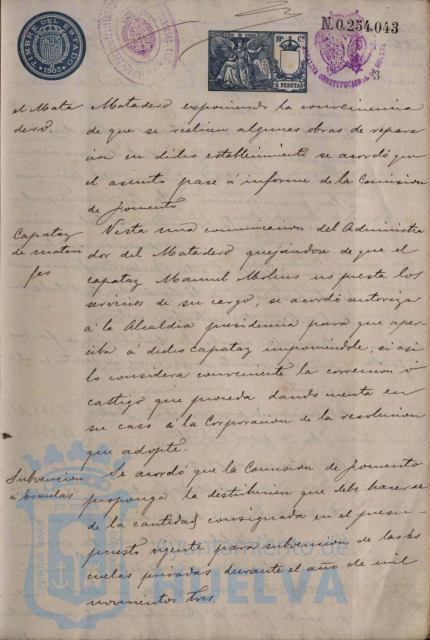 TIMBRE DEL ESTADO
1903
N.0.254.043
2 PESETAS
ALCALDIA CONSTITUCIONAL DE HUELVA
3
el Mata
dero.
Matadero exponiendo la conveniencia
de que se realicen algunas obras de repara
cion en dicho establecimiento se acordó que
el asunto pase á informe de la Comision
de fomento
Capataz
de matari
fes
Vista una comunicacion del Administra
dor del Matadero quejándose de que el
capataz Manuel Molins no presta los
servicios de su cargo, se acordó autorizar
á la Alcaldia presidencia para que aper
ciba á dicho Capataz imponiéndole, si asi
lo considera conveniente la correccion ó
castigo que proceda dando cuenta en
su caso á la Corporacion de la resolucion
que adopte.
Subvencion
á Escuelas
Se acordó que la Comision de fomento
proponga la distribucion que debe hacerse
de la cantidad consignada en el presu
puesto vigente para subvencion de las Es
cuelas privadas durante el año de mil
novecientos tres.
Ayuntamiento de
HUELVA